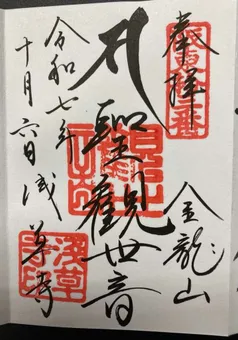 奉拝
金龍山
聖観世音
令和七年
十月六日
浅草寺